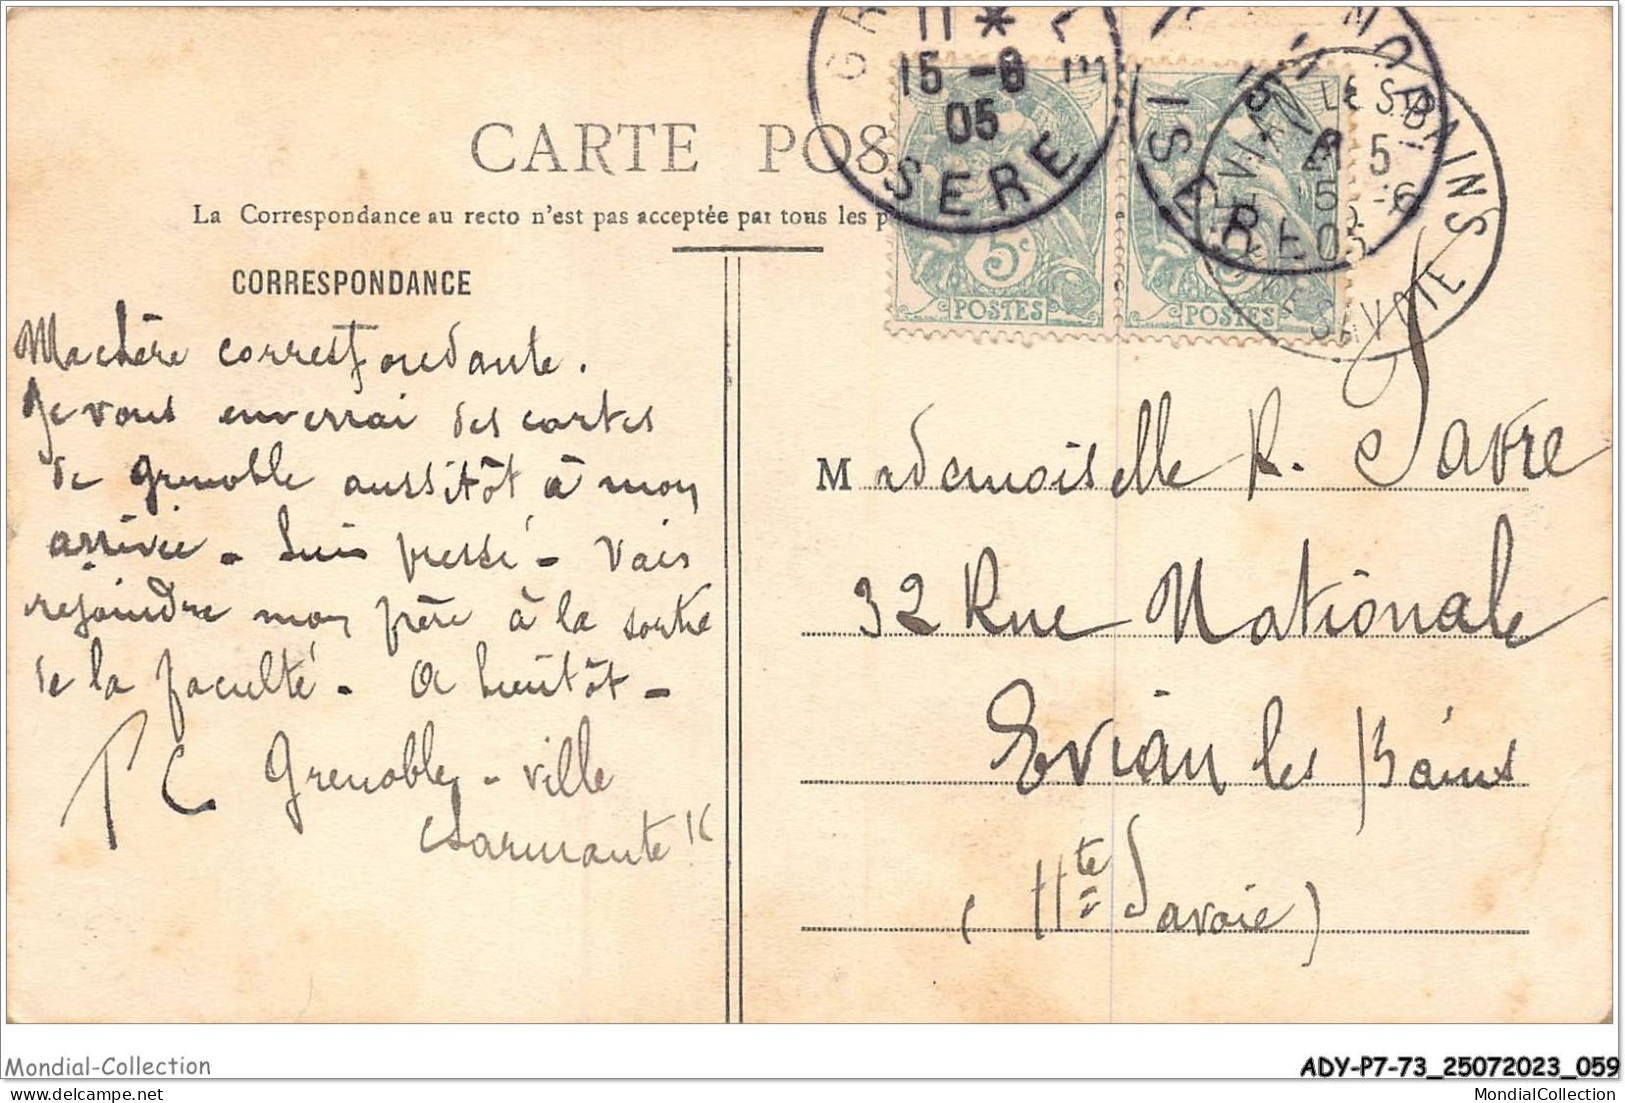 CARTE POS
La Correspondance au recto n'est pas acceptée par tous les p
CORRESPONDANCE
Ma chère correspondante.
Je vous enverrai des cartes
de Grenoble aussitôt à mon
arrivée - suis pressé - Vais
rejoindre mon père à la sortie
de la faculté - A bientôt -
Grenoble - ville
charmante !!
11 *
15 -6
05
ISERE
EVIAN LES BAINS
5
15 -6
05
HTE SAVOIE
5c
POSTES
POSTES
Mademoiselle R. Favre
32 Rue Nationale
Evian les Bains
(Hte Savoie)
Mondial-Collection
ADY-P7-73_25072023_059
www.mondial-collection.com
MondialCollection